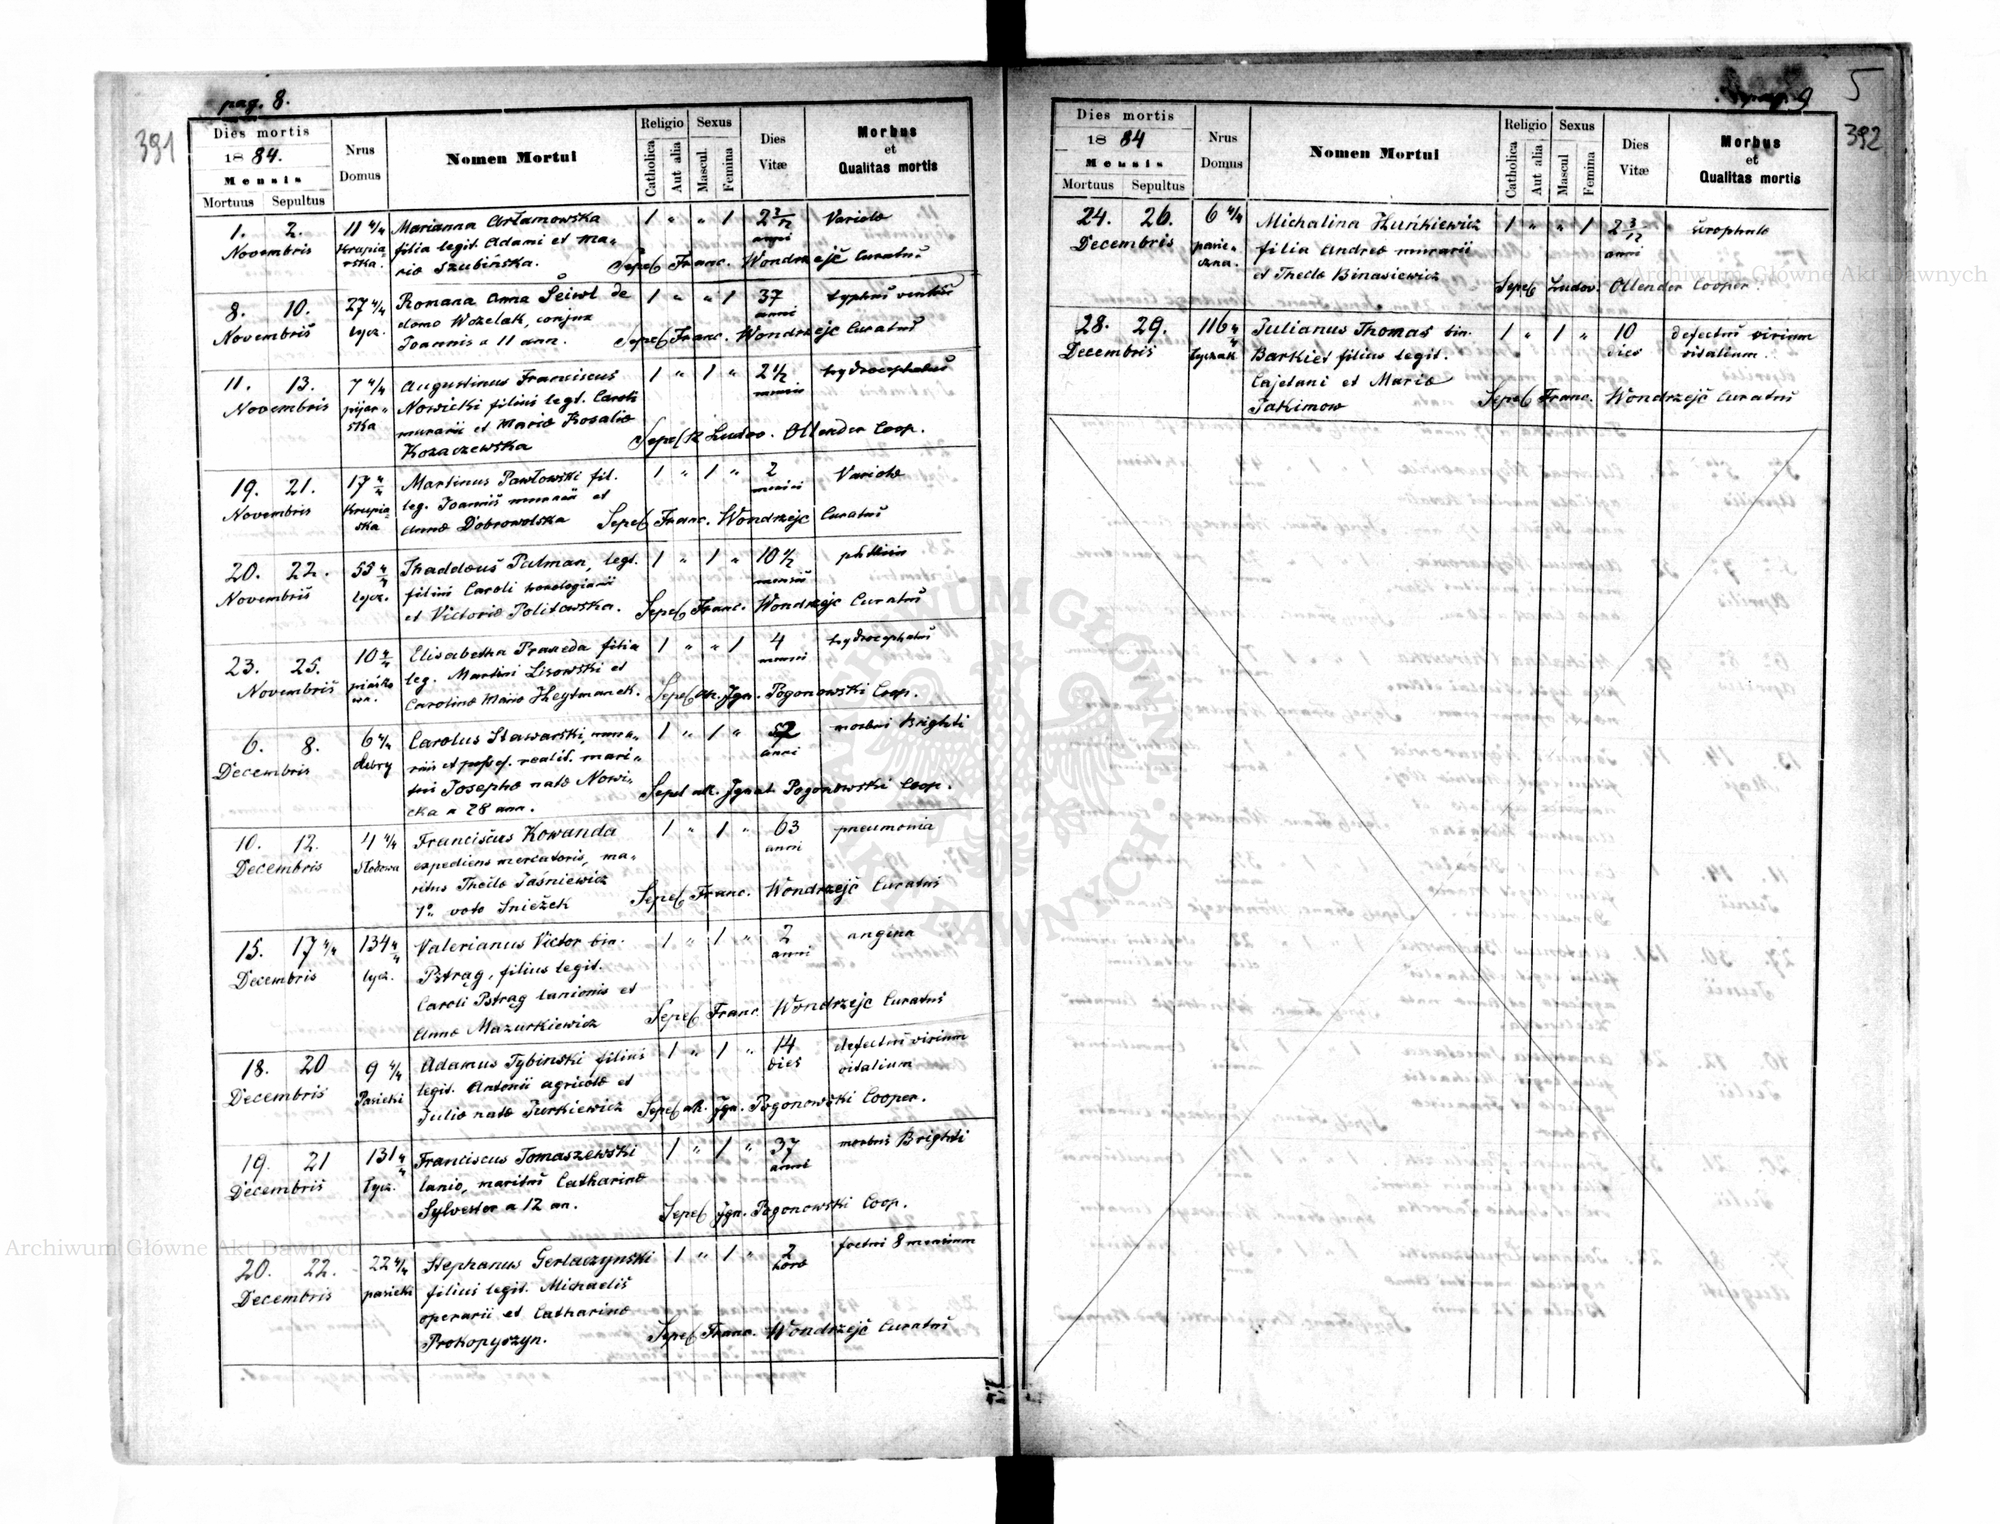 pag. 8.
391
Dies mortis
1884.
Mensis
Mortuus Sepultus
Nrus
Domus
Nomen Mortui
Religio
Catholica
Aut alia
Sexus
Mascul.
Femina
Dies
Vitæ
Morbus
et
Qualitas mortis
1. 2. 11 4/4 Marianna Artamowska 1 " " 1 2 3/12 Variolæ
Novembris Krupia- filia legit. Adami et Ma- anni
rska. riæ Szubińska. Sepel. Franc. Wondrzejč Curatus
8. 10. 27 4/4 Romana Anna Seiwl de 1 " " 1 37 typhus
Novembris Lycz. domo Wozelak, conjux anni
Joannis a 11 ann. Sepel. Franc. Wondrzejc Curatus
11. 13. 7 4/4 Augustinus Franciscus 1 " 1 " 2 1/2 hydrocephalus
Novembris pijar- Nowicki filius legt. Caroli mensis
ska murarii et Mariæ Rosaliæ
Kozaczewska Sepel. Ludov. Ollender Coop.
19. 21. 17 4/4 Martinus Pawłowski fil. 1 " 1 " 2 Variolæ
Novembris Krupia- leg. Joannis murarii et mensis
ska Annæ Dobrowolska Sepel. Franc. Wondrzejc Curatus
20. 22. 55 4/4 Thaddæus Putman, legt. 1 " 1 " 10 1/2 phthisis
Novembris Lycz. filius Caroli horologiarii mensis
et Victoriæ Politowska. Sepel. Franc. Wondrzejc Curatus
23. 25. 10 4/4 Elisabetha Praxeda filia 1 " " 1 4 hydrocephalus
Novembris leg. Martini Lisowski et mensis
Carolinæ Mariæ Heytmanek. Sepel. Ign. Pogonowski Coop.
6. 8. 6 4/4 Carolus Stawarski, mura- 1 " 1 " 52 morbus Brighti
Decembris debry rius et possess. realit. mari- anni
tus Josephæ natæ Nowi-
cka a 28 ann. Sepel. Ignat. Pogonowski Coop.
10. 12. 4 4/4 Franciscus Kowanda 1 " 1 " 63 pneumonia
Decembris Słodowa expediens mercatoris, ma- anni
ritus Theclæ Jaśniewicz
1° voto Snieżek Sepel. Franc. Wondrzejč Curatus
15. 17 4/4 134 4/4 Valerianus Victor bin. 1 " 1 " 2 angina
Decembris Lycz. Pstrąg, filius legit. anni
Caroli Pstrąg lanionis et
Annæ Mazurkiewicz Sepel. Franc. Wondrzejc Curatus
18. 20 9 4/4 Adamus Tybinski filius 1 " 1 " 14 defectus virium
Decembris Pasieki legit. Antonii agricolæ et dies vitalium
Juliæ natæ Turkiewicz Sepel. Ign. Pogonowski Cooper.
19. 21 131 4/4 Franciscus Tomaszewski 1 " 1 " 37 morbus Brighti
Decembris Lycz. lanio, maritus Catharinæ anni
Sylvester a 12 an. Sepel. Ign. Pogonowski Coop.
20. 22. 22 4/4 Stephanus Gerlaczynski 1 " 1 " 2 foetus 8 mensium
Decembris pasieki filius legit. Michaelis horæ
operarii et Catharinæ
Prokopyszyn. Sepel. Franc. Wondrzejč Curatus
9
5
392
Dies mortis
1884
Mensis
Mortuus Sepultus
Nrus
Domus
Nomen Mortui
Religio
Catholica
Aut alia
Sexus
Mascul
Femina
Dies
Vitæ
Morbus
et
Qualitas mortis
24. 26. 6 4/4 Michalina Huńkiewicz 1 " " 1 2 3/12
Decembris pasie- filia Andreæ murarii anni
czna. et Theclæ Binasiewicz Sepel. Ludov. Ollender Cooper.
28. 29. 116 4/4 Julianus Thomas bin. 1 " 1 " 10 defectus virium
Decembris Lyczak Barkiet filius legit. dies vitalium.
Cajetani et Mariæ
Jakimow Sepel. Franc. Wondrzejč Curatus
Archiwum Główne Akt Dawnych
Archiwum Główne Akt Dawnych
ARCHIWUM GŁÓWNE AKT DAWNYCH